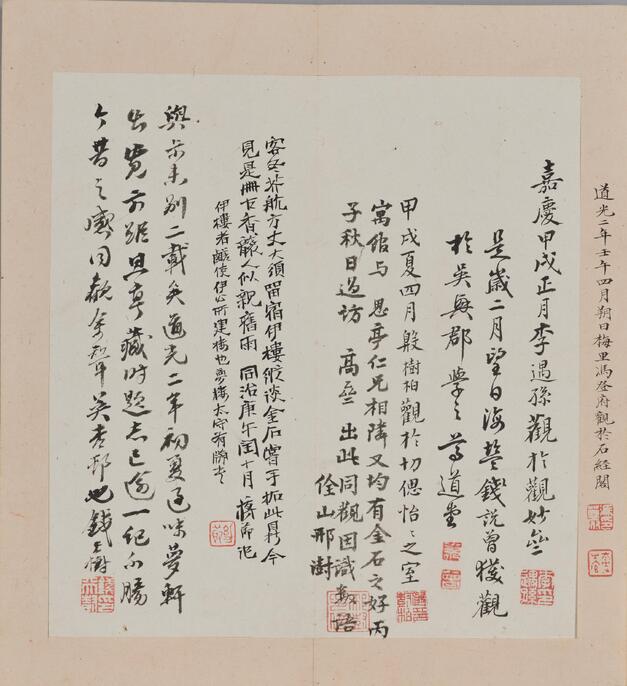 道光二年壬午四月朔日梅里馮登府觀於石經閣
嘉慶甲戌正月李遇孫觀於觀妙齋
是歲二月望日海鹽錢說曾獲觀
於吳興郡學之尊道堂
甲戌夏四月殷樹柏觀於切偲怡怡之室
寓館与思亭仁兄相隣又均有金石之好丙
子秋日過訪 高齋出此同觀因識數語
佺山邢澍
客冬芥航方丈大須留宿伊樓縱談金石曾手拓此鼎今
見是冊古香襲人似親舊雨 同治庚午閏十月 蔣節記
伊樓者鹺使伊公所建樓也夢樓太守有勝
與 別二載矣道光二年初夏過味夢軒
出覽前 思亭藏時題志已逾一紀不勝
今昔之感同觀 吳 也錢 樹